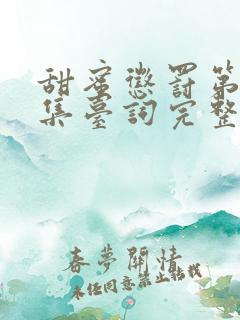 甜蜜懲罰第
集臺詞完整
春夢關情
未经同意禁止转载